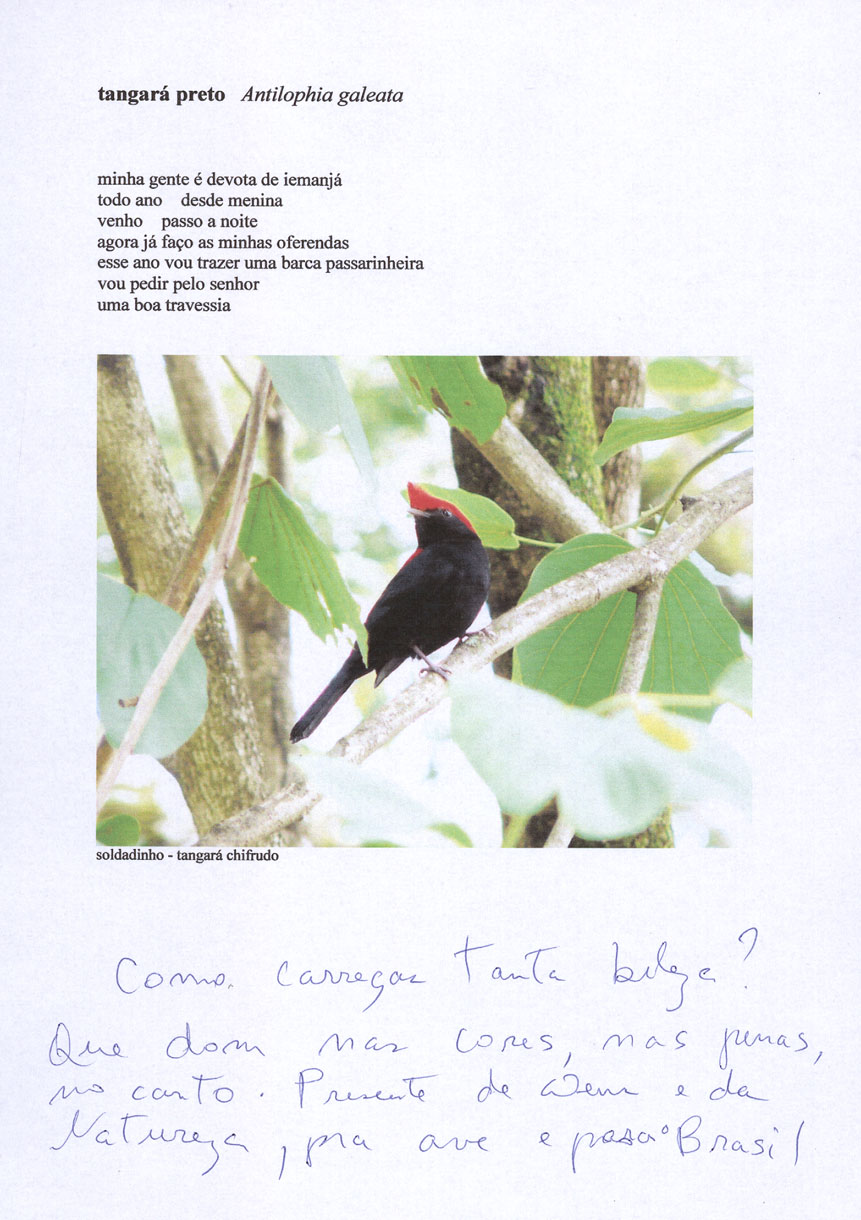 tangará preto Antilophia galeata
minha gente é devota de iemanjá
todo ano desde menina
venho passo a noite
agora já faço as minhas oferendas
esse ano vou trazer uma barca passarinheira
vou pedir pelo senhor
uma boa travessia
soldadinho - tangará chifrudo
Como carregas tanta beleza?
Que dom nas cores, nas penas,
no canto. Presente de e da
Natureza, pra ave e Brasil